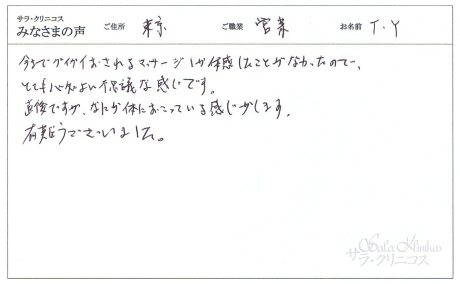 サラ・クリニコス
みなさまの声 ご住所 東京 ご職業 営業 お名前 T.Y
今までグイグイおされるマッサージしか体感したことがなかったので、
とても心地よい不思議な感じです。
直後ですが、なにか体におこっている感じがします。
有難うございました。
Sala Klinikos
サラ・クリニコス